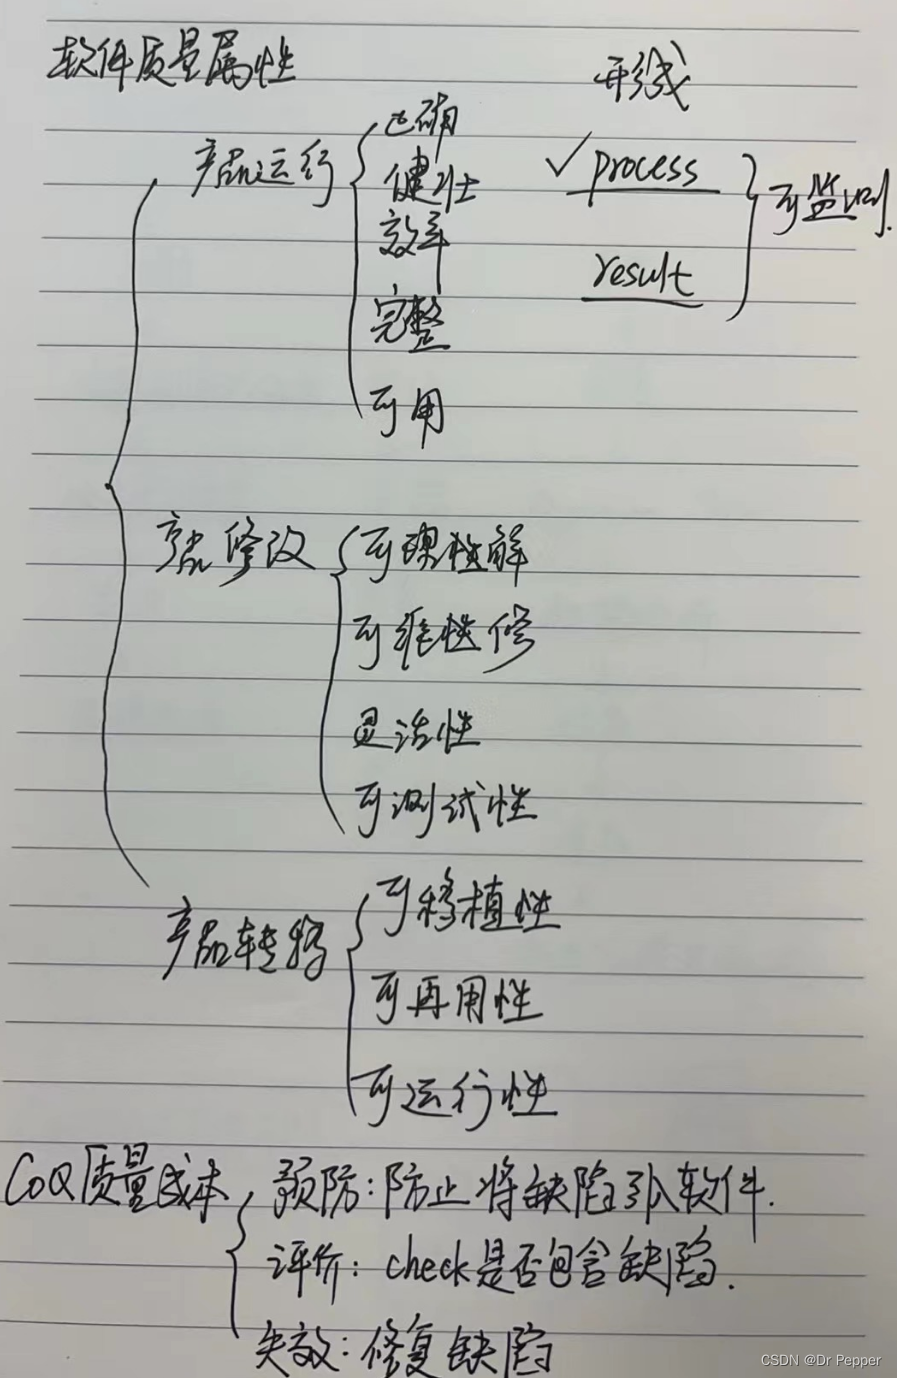 软件质量属性
形成
产品运行
正确
健壮
效率
完整
可用
✓ process
result
可监测.
产品修改
可理性解
可维性修
灵活性
可测试性
产品转移
可移植性
可再用性
可运行性
CoQ质量成本
预防:防止将缺陷引入软件.
评价: check是否包含缺陷.
失效:修复缺陷
CSDN @Dr Pepper